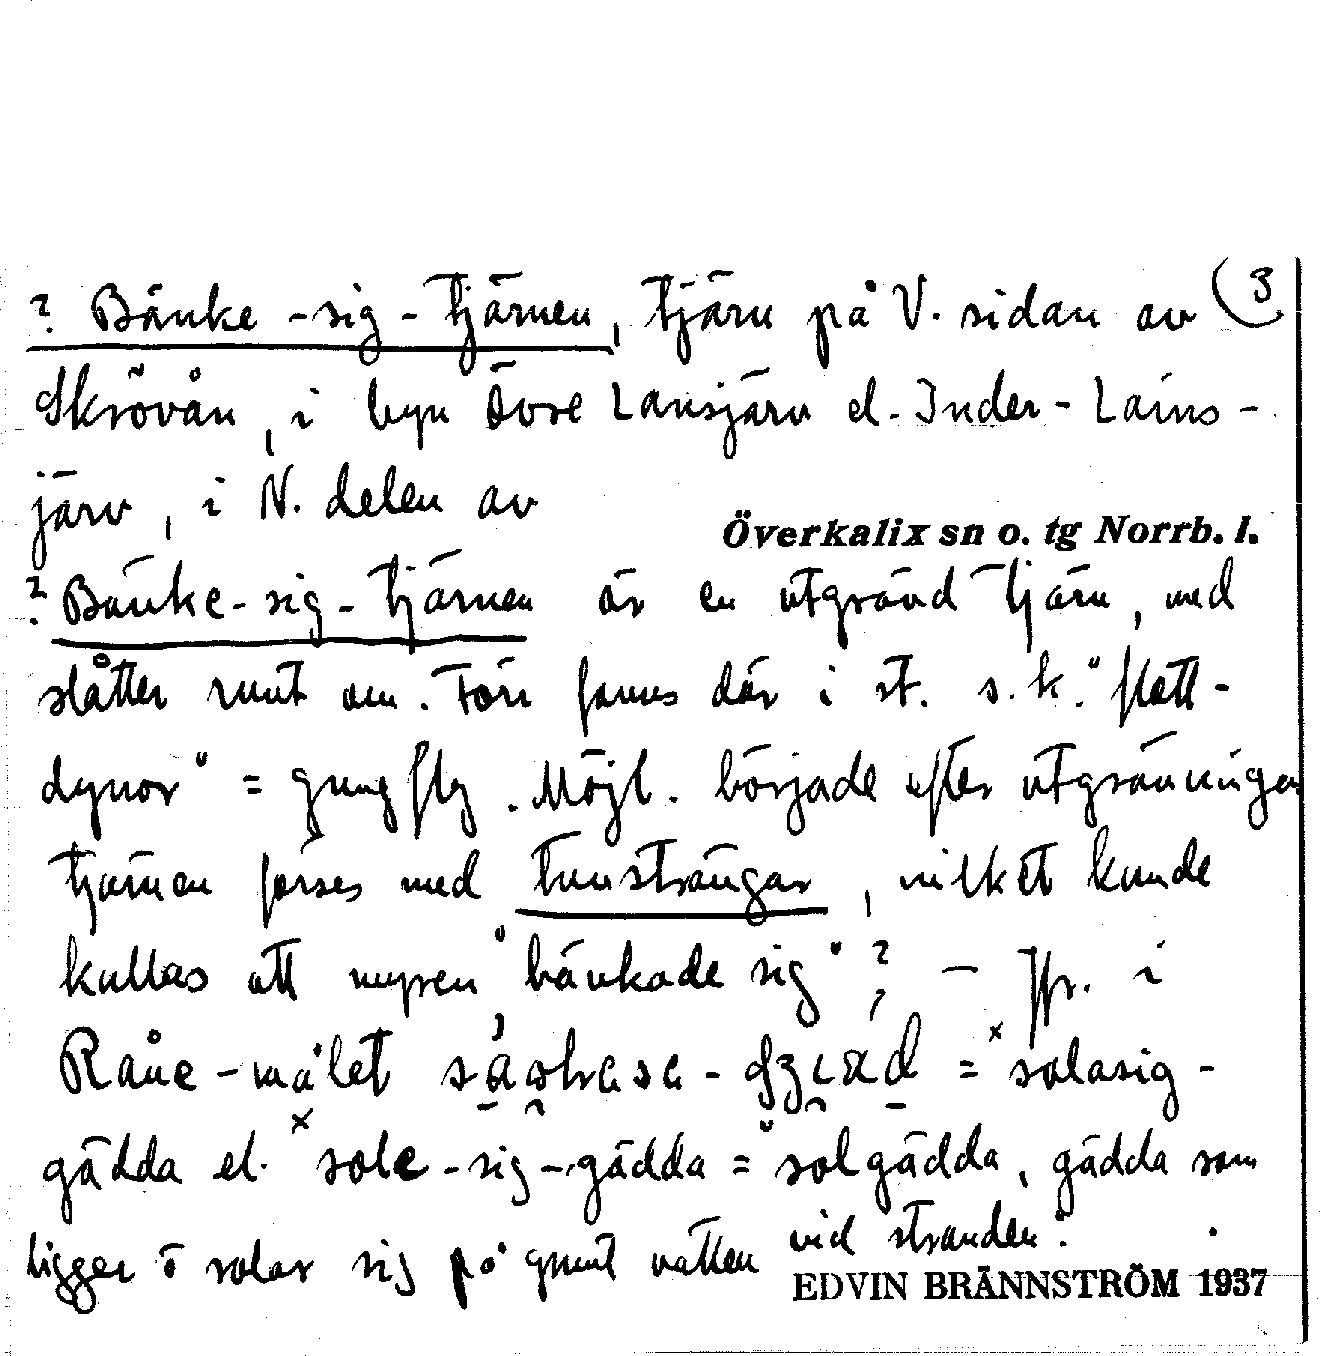 ? Bänke-sig-tjärnen, tjärn på V. sidan av (3
Skrövån, i byn Övre Lansjärv el. Inder-Lains-
järv, i N. delen av
Överkalix sn o. tg Norrb. l.
? Bänke-sig-tjärnen är en utgrävd tjärn, med
slåtter runt om. Förr fanns där i st. s.k. "flott-
dynor" = gungfly. Möjl. började efter utgrävningen
tjärnen förses med tunsträngar, vilket kunde
kallas att myren "bänkade sig"? — Jfr. i
Råne-målet = ˣsolasig-
gädda el. ˣsole-sig-gädda = "solgädda, gädda som
ligger o solar sig på grunt vatten vid stranden".
EDVIN BRÄNNSTRÖM 1937